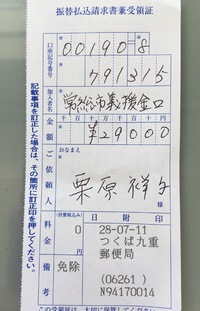 振替払込請求書兼受領証
口座記号番号
00190=8
791315
加入者名
常総市義援金口
金額
千 百 十 万 千 百 十 円
¥29000
おなまえ
ご依頼人
栗原祥
様
料金
(消費税込み)
0
円
日附印
28-07-11
つくば九重
郵便局
備考
免除
(06261)
N94170014
記載事項を訂正した場合は、その箇所に訂正印を押してください。
この受領証は、大切に保管してください。